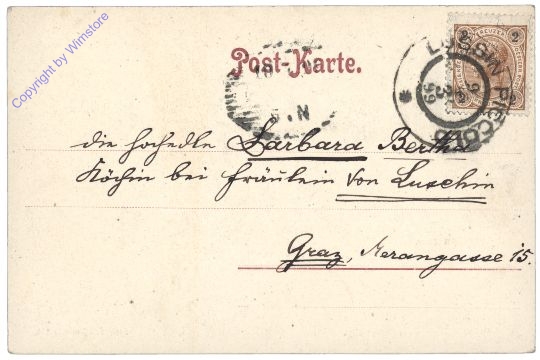 Copyright by Wimstore
Post-Karte.
2 KREUZER 2
LUSSIN PICCOLO
99
die hochedle Barbara Bertha
Köchin bei Fräulein von Luschin
Graz, Merangasse 15.